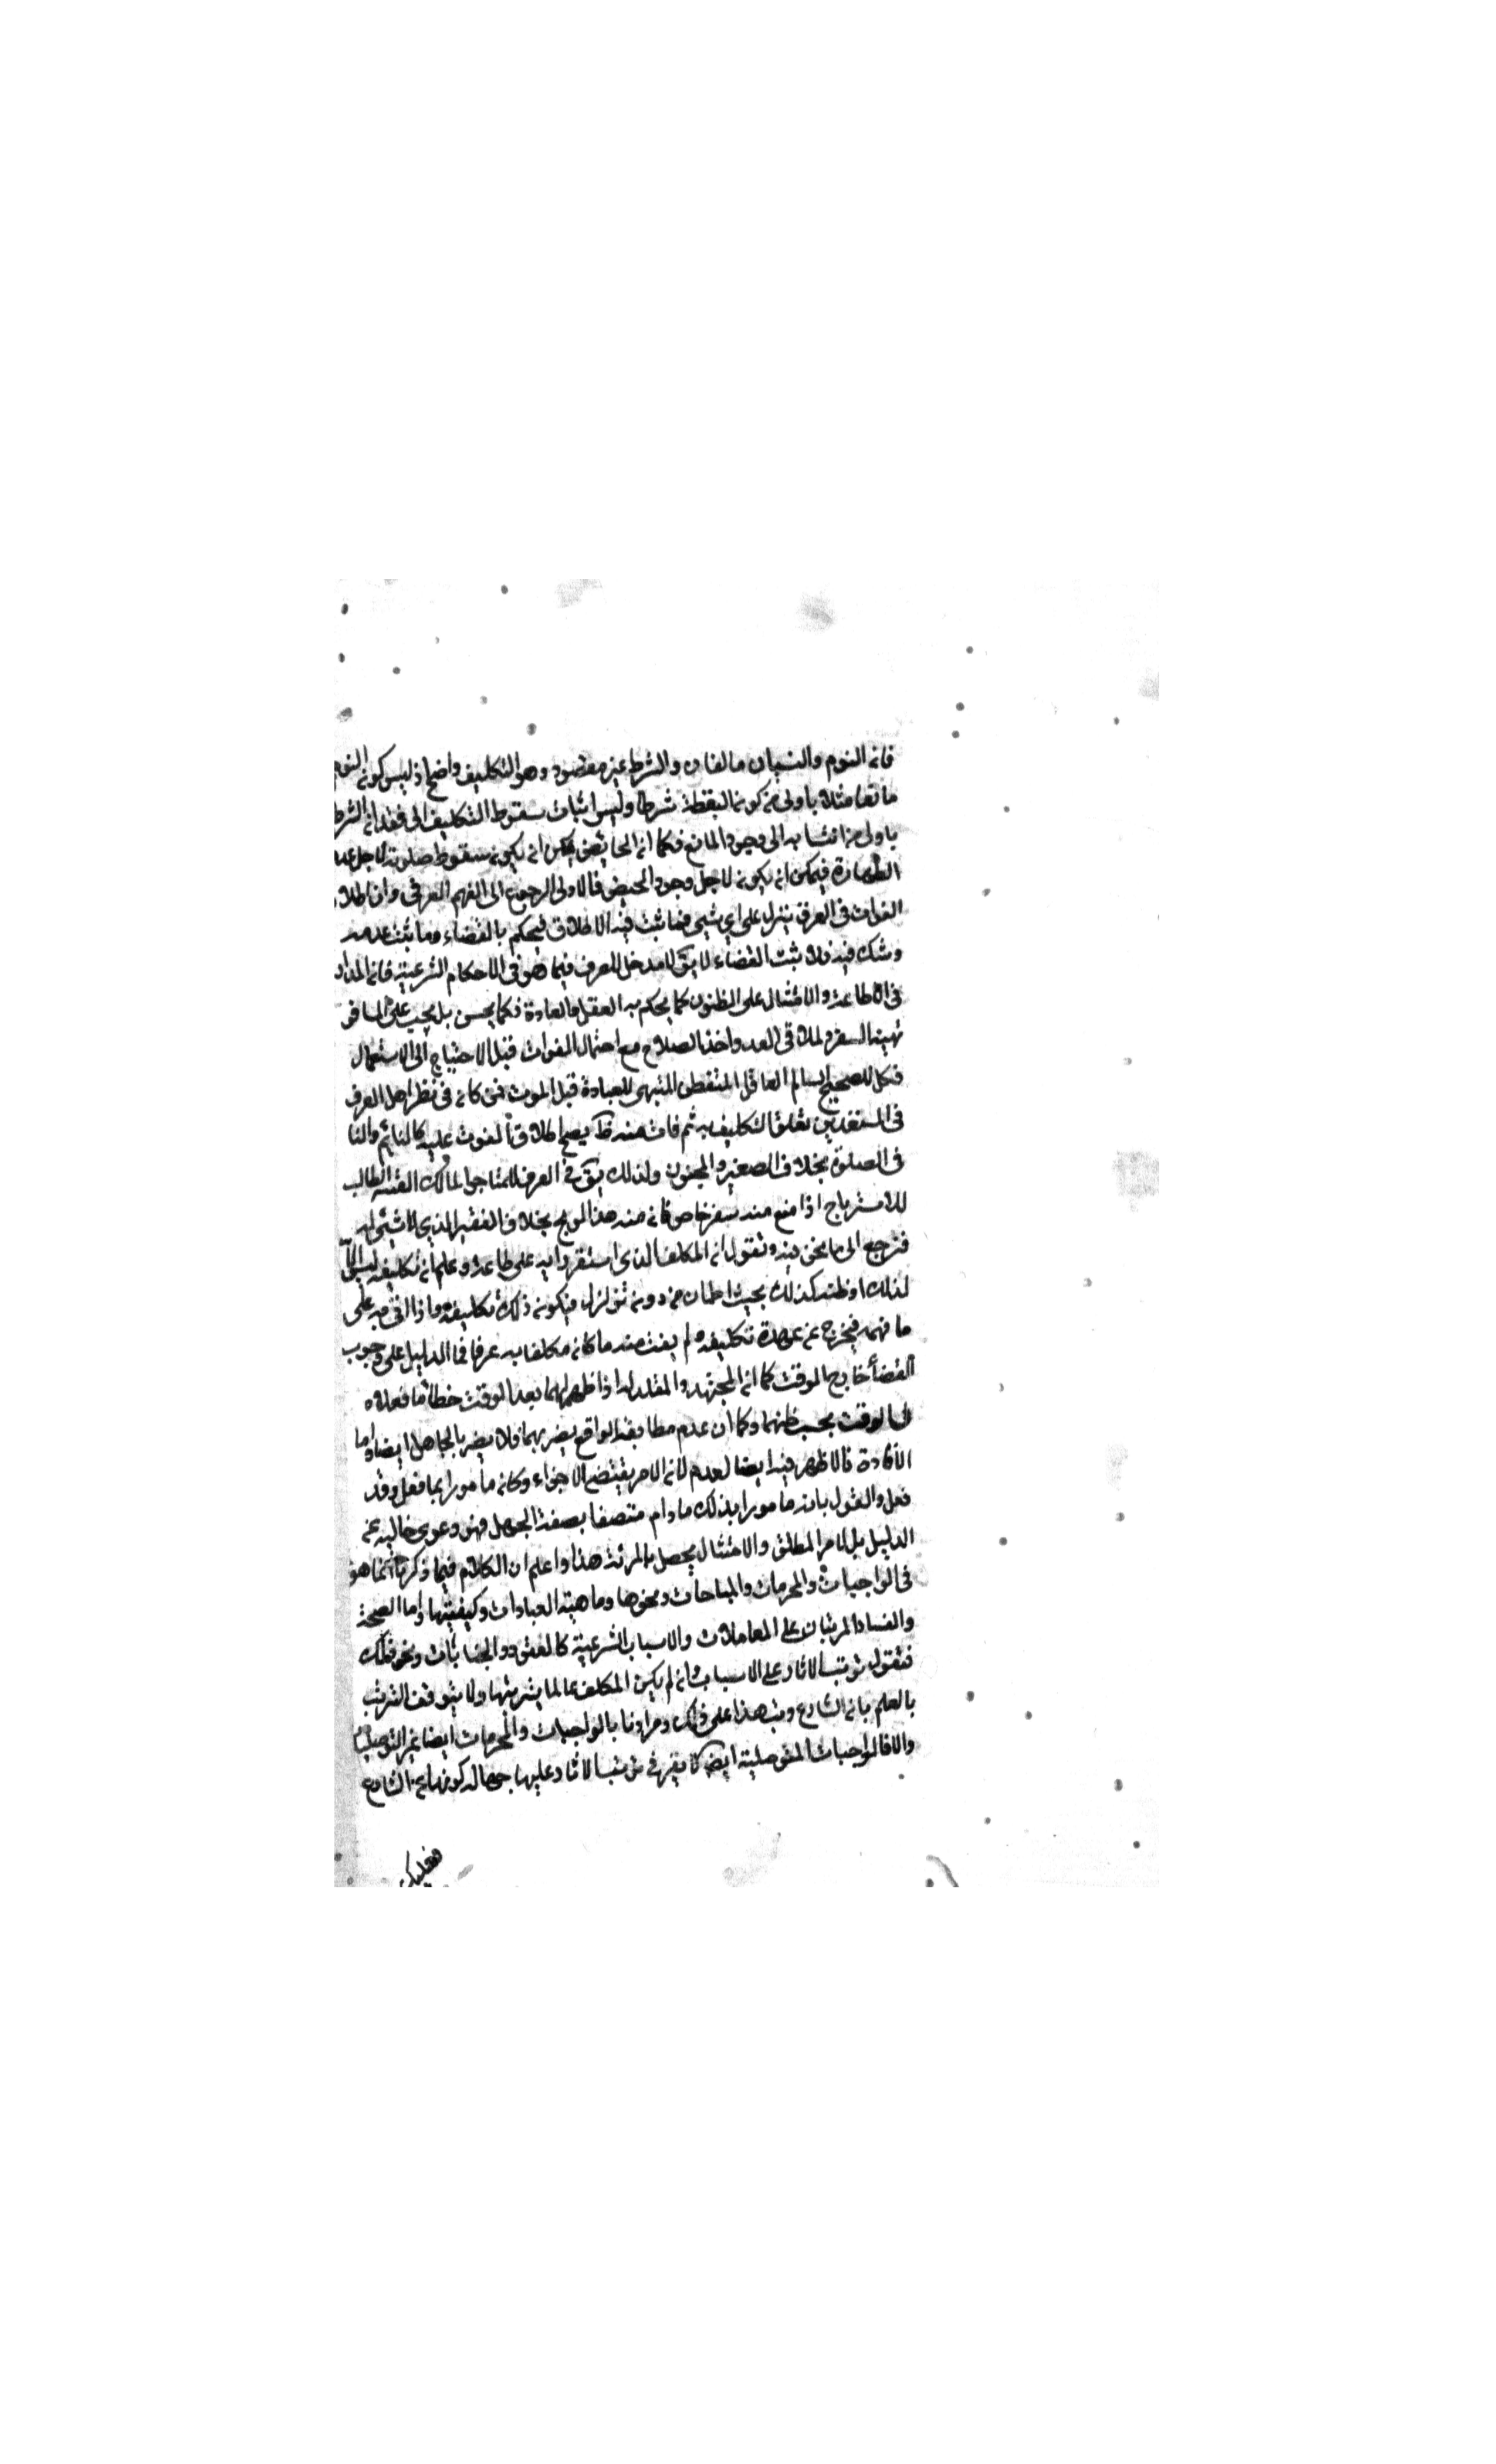 فان النوم والنسيان مانعان والشرط غير مقصود وهو التكليف واضح اذ ليس كون النوم
مانعا مثلا باولى من كون اليقظة شرطا وليس اثبات سقوط التكليف الى فقدان الشرط
باولى من انتسابه الى وجود المانع فكما ان الحايض يمكن ان يكون سقوط صلوته لاجل عدم
الطهارة فيمكن ان يكون لاجل وجود الحيض فالاولى الرجوع الى الفهم العرفي وان اطلاق
الفوات في العرف ينزل على اي شيء فما ثبت فيه الاطلاق فيحكم بالقضاء وما ثبت عدمه
وشك فيه فلا يثبت القضاء لا يق لا مدخل للعرف فيما هو في الاحكام الشرعية فان المدار
في الاطاعة والامتثال على الظنون كما يحكم به العقل والعادة فكما يحسن بل يجب على المسافر
تهيئة السفر ولملاقى العدو اخذ السلاح مع احتمال الفوات قبل الاحتياج الى الاستعمال
فكل للصحيح السالم العاقل المتفطن التهيئ للعبادة قبل الموت فمن كان في نظر اهل العرف
في المستعدين تعلق التكليف به ثم فات منه ذلك يصح اطلاق الفوت عليه كالنائم والناسي
في الصلوة بخلاف الصغير والمجنون ولذلك يق في العرف للتاجر المالك الطالب
للاسترباح اذا منع منه سفر خاص فات منه هذا الربح بخلاف الفقير الذي لا شيء له
فنرجع الى ما نحن فيه ونقول ان المكلف الذي استقر رايه على طاعة وعلم ان تكليفه ليس الا
لذلك او ظنه كذلك بحيث اطمان من دون تزلزل فيكون ذلك تكليفه واذا اتى به على
ما فهمه فيخرج عن عهدة تكليفه ولم يفت منه ما كان مكلفا به عرفا فما الدليل على وجوب
القضاء خارج الوقت كما ان المجتهد والمقلد له اذا ظهر لهما بعد الوقت خطاء ما فعلاه
في الوقت بحسب ظنهما وكما ان عدم مطابقة الواقع يضر بهما فلا يضر بالجاهل ايضا واما
الاعادة فالاظهر فيه ايضا لعدم لان الامر يقتضي الاجزاء وكان مامورا بما فعل وقد
فعل والقول بانه مامورا بذلك ما دام متصفا بصفة الجهل فهو دعوى خالية عن
الدليل بل الامر المطلق والامتثال يحصل بالمرة هذا واعلم ان الكلام فيما ذكرنا انما هو
في الواجبات والمحرمات والمباحات ونحوها وماهية العبادات وكيفيتها واما الصحة
والفساد المرتبان على المعاملات والاسباب الشرعية كالعقود والجنايات ونحو ذلك
فنقول ترتب الاثار على الاسباب وان لم يكن المكلف عالما بترتبها ولا يتوقف الترتب
بالعلم بان الشارع رتب هذا على ذلك ومرادنا بالواجبات والمحرمات ايضا غير التوصليات
والا فالواجبات التوصلية ايضا لا يضر في ترتب الاثار عليها جهالة كونها من الشارع